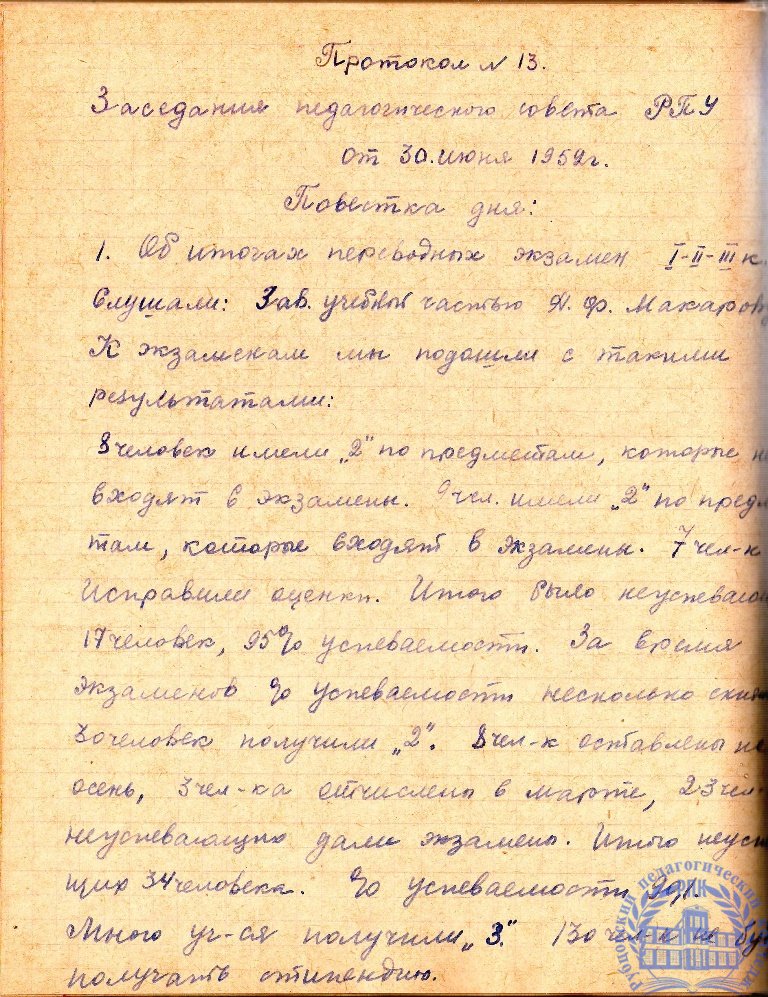 Протокол N 13.
Заседания педагогического совета РПУ
от 30. июня 1959г.
Повестка дня:
1. Об итогах переводных экзамен I-II-III к.
Слушали: Зав. учебной частью Ф. Макаров
К экзаменам мы подошли с такими
результатами:
8 человек имели „2" по предметам, которые н
входят в экзамены. 9 чел. имели „2" по предм
там, которые входят в экзамены. 7 чел-к
исправили оценки. Итого было неуспеваю
17 человек, 95% успеваемости. За время
экзаменов % успеваемости несколько сни
30 человек получили „2". 8 чел-к оставлены на
осень, 3 чел-ка отчислены в марте, 23 чел-
неуспевающих дали экзамены. Итого неусп
щих 34 человека. % успеваемости
Много уч-ся получили „3". 130 чел-к не бу
получать стипендию.
Рубцовский педагогический
РПК